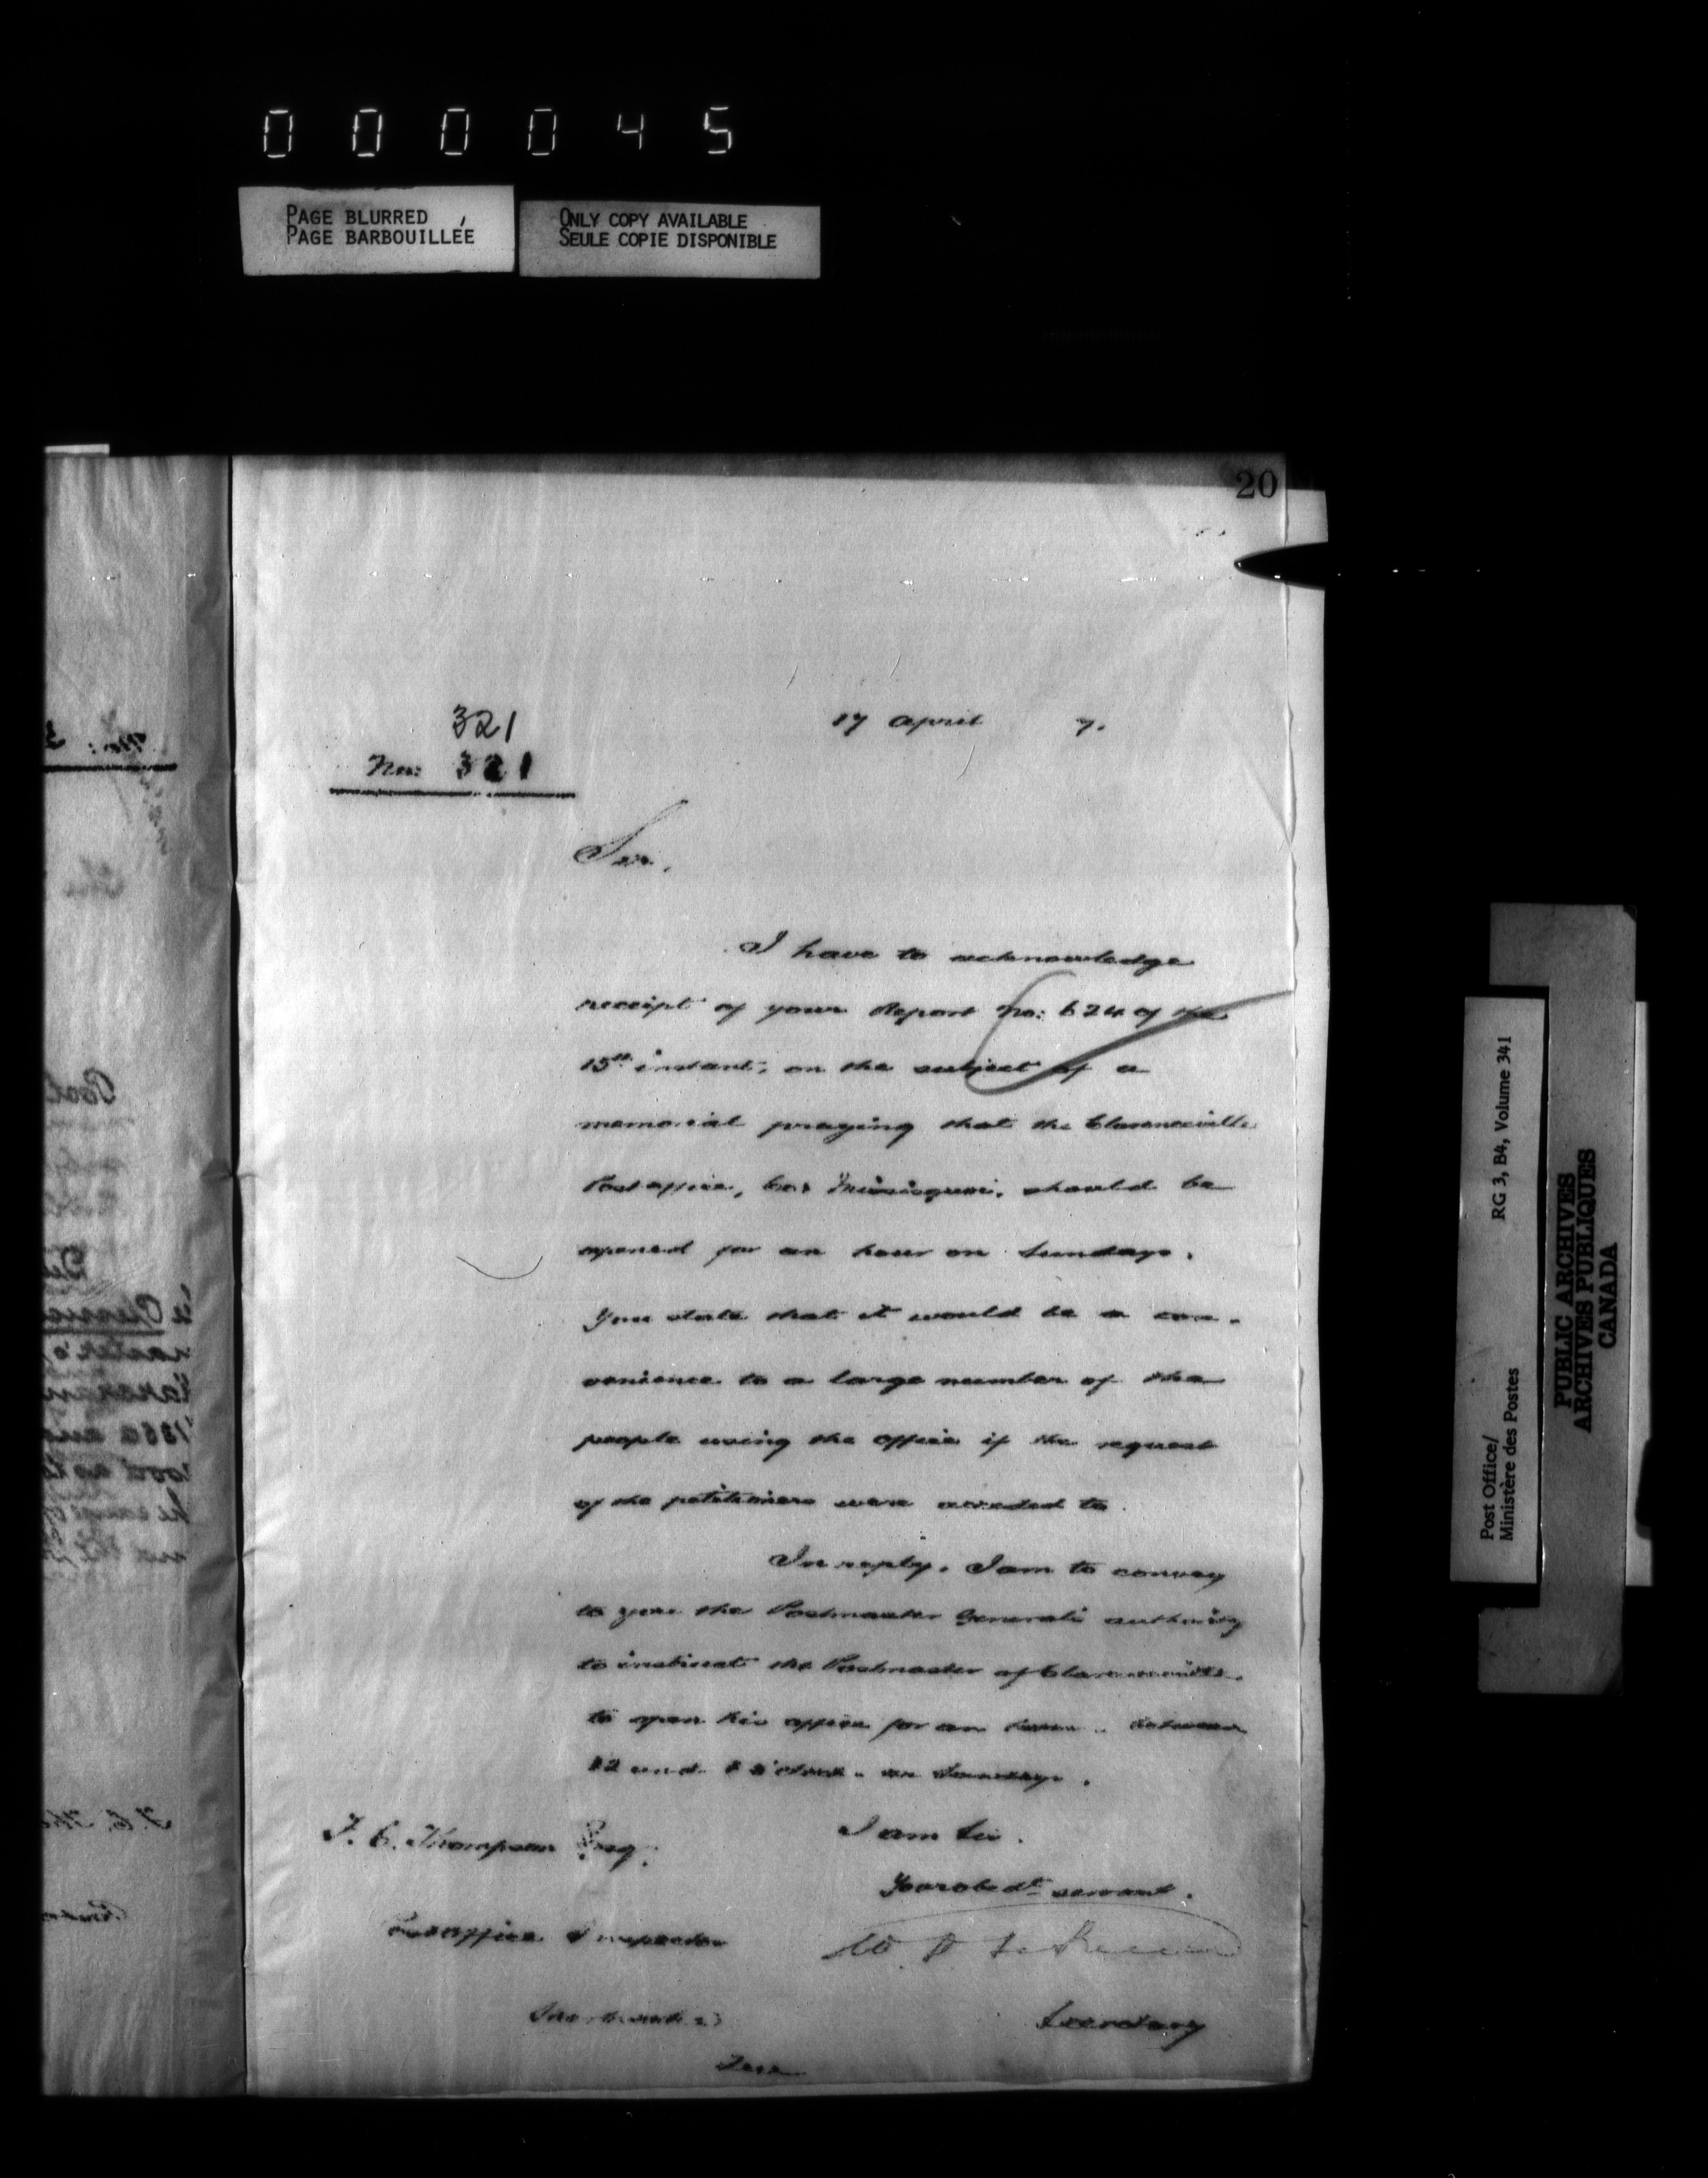 000045
PAGE BLURRED
PAGE BARBOUILLÉE
ONLY COPY AVAILABLE
SEULE COPIE DISPONIBLE
20
321
17 April 7.
No: 321
Sir,
I have to acknowledge
receipt of your Report No: 624 of the
15th instant, on the subject of a
memorial praying that the Clarenceville
Post office, Co: Missisquoi, should be
opened for an hour on Sundays.
You state that it would be a con-
venience to a large number of the
people using the office if the request
of the petitioners were acceded to.
In reply, I am to convey
to you the Postmaster General's authority
to instruct the Postmaster of Clarenceville
to open his office for an hour - between
12 and 1 o'clock - on Sundays.
I am Sir.
Your obedt servant.
T. C. Thompson Esq.
Post office Inspector
W. D.
Secretary
RG 3, B4, Volume 341
Post Office/
Ministère des Postes
PUBLIC ARCHIVES
ARCHIVES PUBLIQUES
CANADA